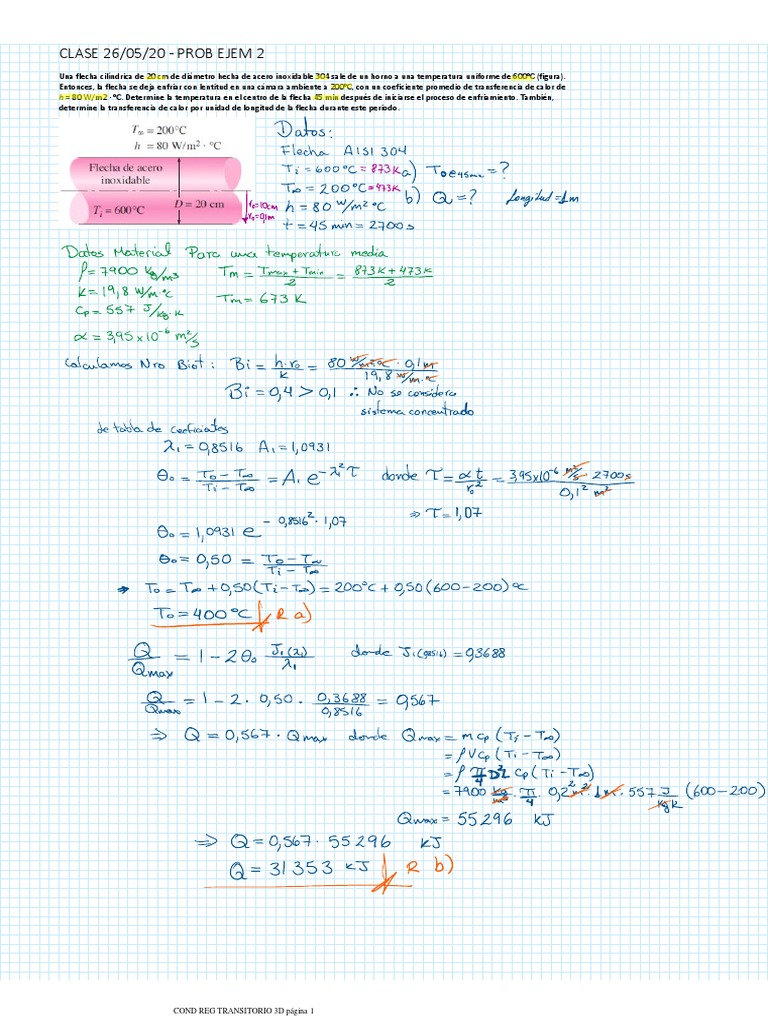 CLASE 26/05/20 - PROB EJEM 2
Una flecha cilíndrica de 20 cm de diámetro hecha de acero inoxidable 304 sale de un horno a una temperatura uniforme de 600°C (figura).
Entonces, la flecha se deja enfriar con lentitud en una cámara ambiente a 200°C, con un coeficiente promedio de transferencia de calor de
h = 80 W/m2 · °C. Determine la temperatura en el centro de la flecha 45 min después de iniciarse el proceso de enfriamiento. También,
determine la transferencia de calor por unidad de longitud de la flecha durante este periodo.
T∞ = 200°C
h = 80 W/m² · °C
Flecha de acero
inoxidable
D = 20 cm
Ti = 600°C
r₀=10cm
r₀=0,1m
Datos:
Flecha AISI 304
Ti = 600°C = 873K a) T₀ @ 45min = ?
T∞ = 200°C = 473K b) Q = ? Longitud = 1m
h = 80 W/m²°C
t = 45 min = 2700 s
Datos Material Para una temperatura media
ρ = 7900 kg/m3 Tm = (Tmax + Tmin)/2 = (873K + 473K)/2
K = 19,8 W/m°C Tm = 673 K
Cp = 557 J/kg·K
α = 3,95 x 10⁻⁶ m²/s
Calculamos Nro Biot: Bi = h·r₀/k = 80 W/m²°C · 0,1m / 19,8 W/m·°C
Bi = 0,4 > 0,1 ∴ No se considera
sistema concentrado
de tabla de coeficientes
λ₁ = 0,8516 A₁ = 1,0931
θ₀ = (T₀ - T∞)/(Ti - T∞) = A₁ e^(-λ₁²τ) donde τ = αt/r₀² = 3,95x10⁻⁶ m²/s 2700s / 0,1² m²
⇒ τ = 1,07
θ₀ = 1,0931 e^(-0,8516² · 1,07)
θ₀ = 0,50 = (T₀ - T∞)/(Ti - T∞)
→ T₀ = T∞ + 0,50 (Ti - T∞) = 200°C + 0,50 (600 - 200)°C
T₀ = 400°C R a)
Q/Qmax = 1 - 2θ₀ J₁(λ₁)/λ₁ donde J₁(0,8516) = 0,3688
Q/Qmax = 1 - 2 · 0,50 · 0,3688/0,8516 = 0,567
⇒ Q = 0,567 · Qmax donde Qmax = m Cp (Ti - T∞)
= ρ V Cp (Ti - T∞)
= ρ π/4 D² L Cp (Ti - T∞)
= 7900 kg/m³ · π/4 · 0,2² m² · 1m · 557 J/kg K (600 - 200)
Qmax = 55 296 kJ
⇒ Q = 0,567 · 55 296 kJ
Q = 31 353 kJ R b)
COND REG TRANSITORIO 3D página 1